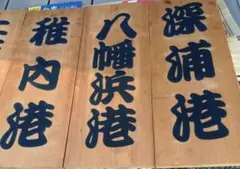 深浦港
八幡浜港
稚内港